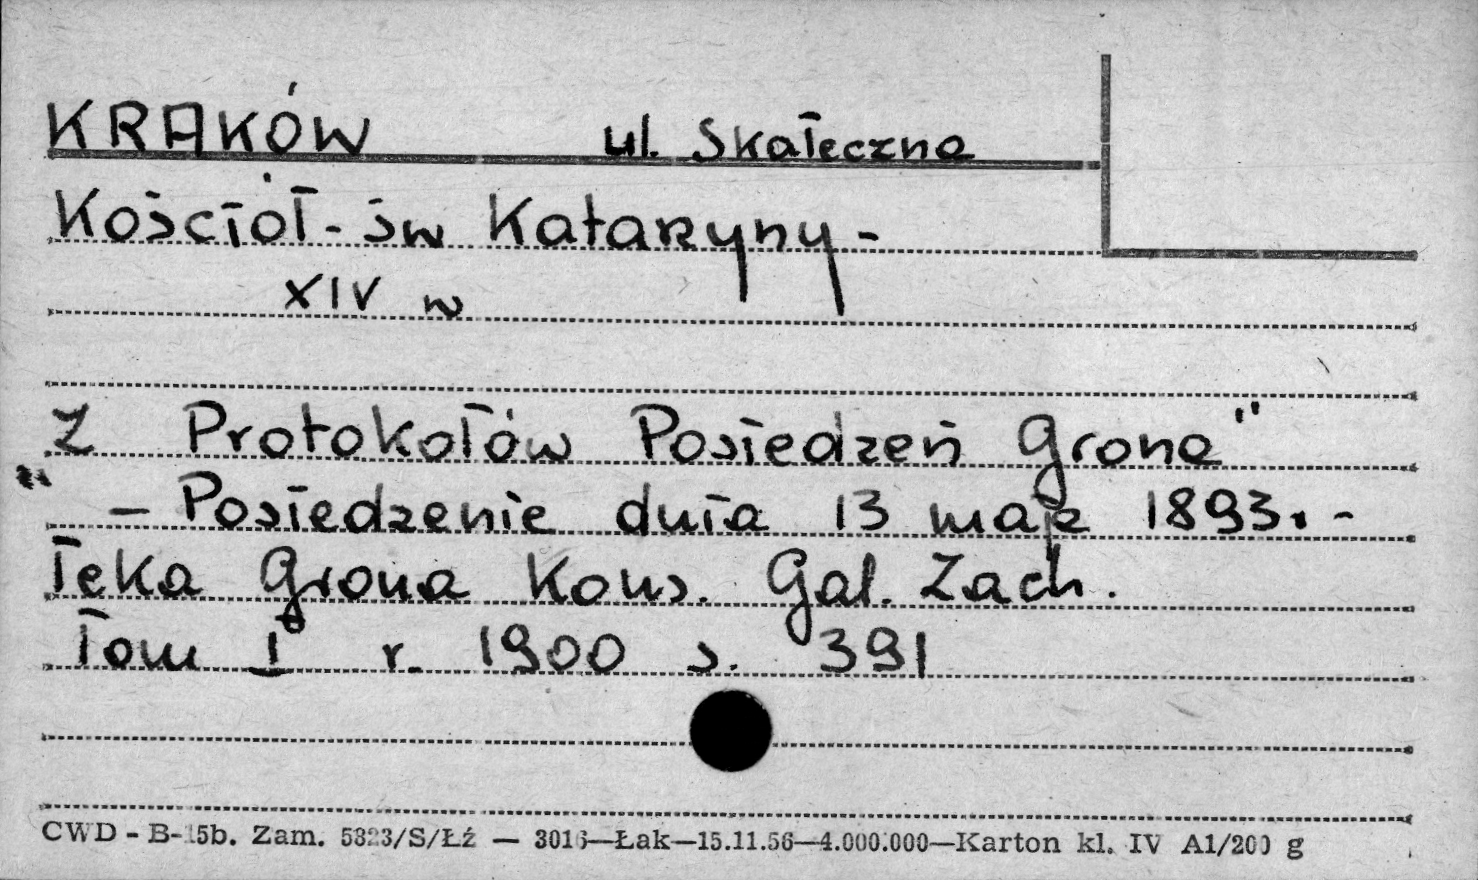 KRAKÓW ul. Skałeczna
Kościół - św Katarzyny -
XIV w
Z Protokołów Posiedzeń Grona"
" - Posiedzenie dnia 13 maja 1893. -
Teka Grona Kons. Gal. Zach.
Tom I r. 1900 s. 391
CWD - B-15b. Zam. 5823/S/Łź — 3016—Łak—15.11.56—4.000.000—Karton kl. IV A1/200 g